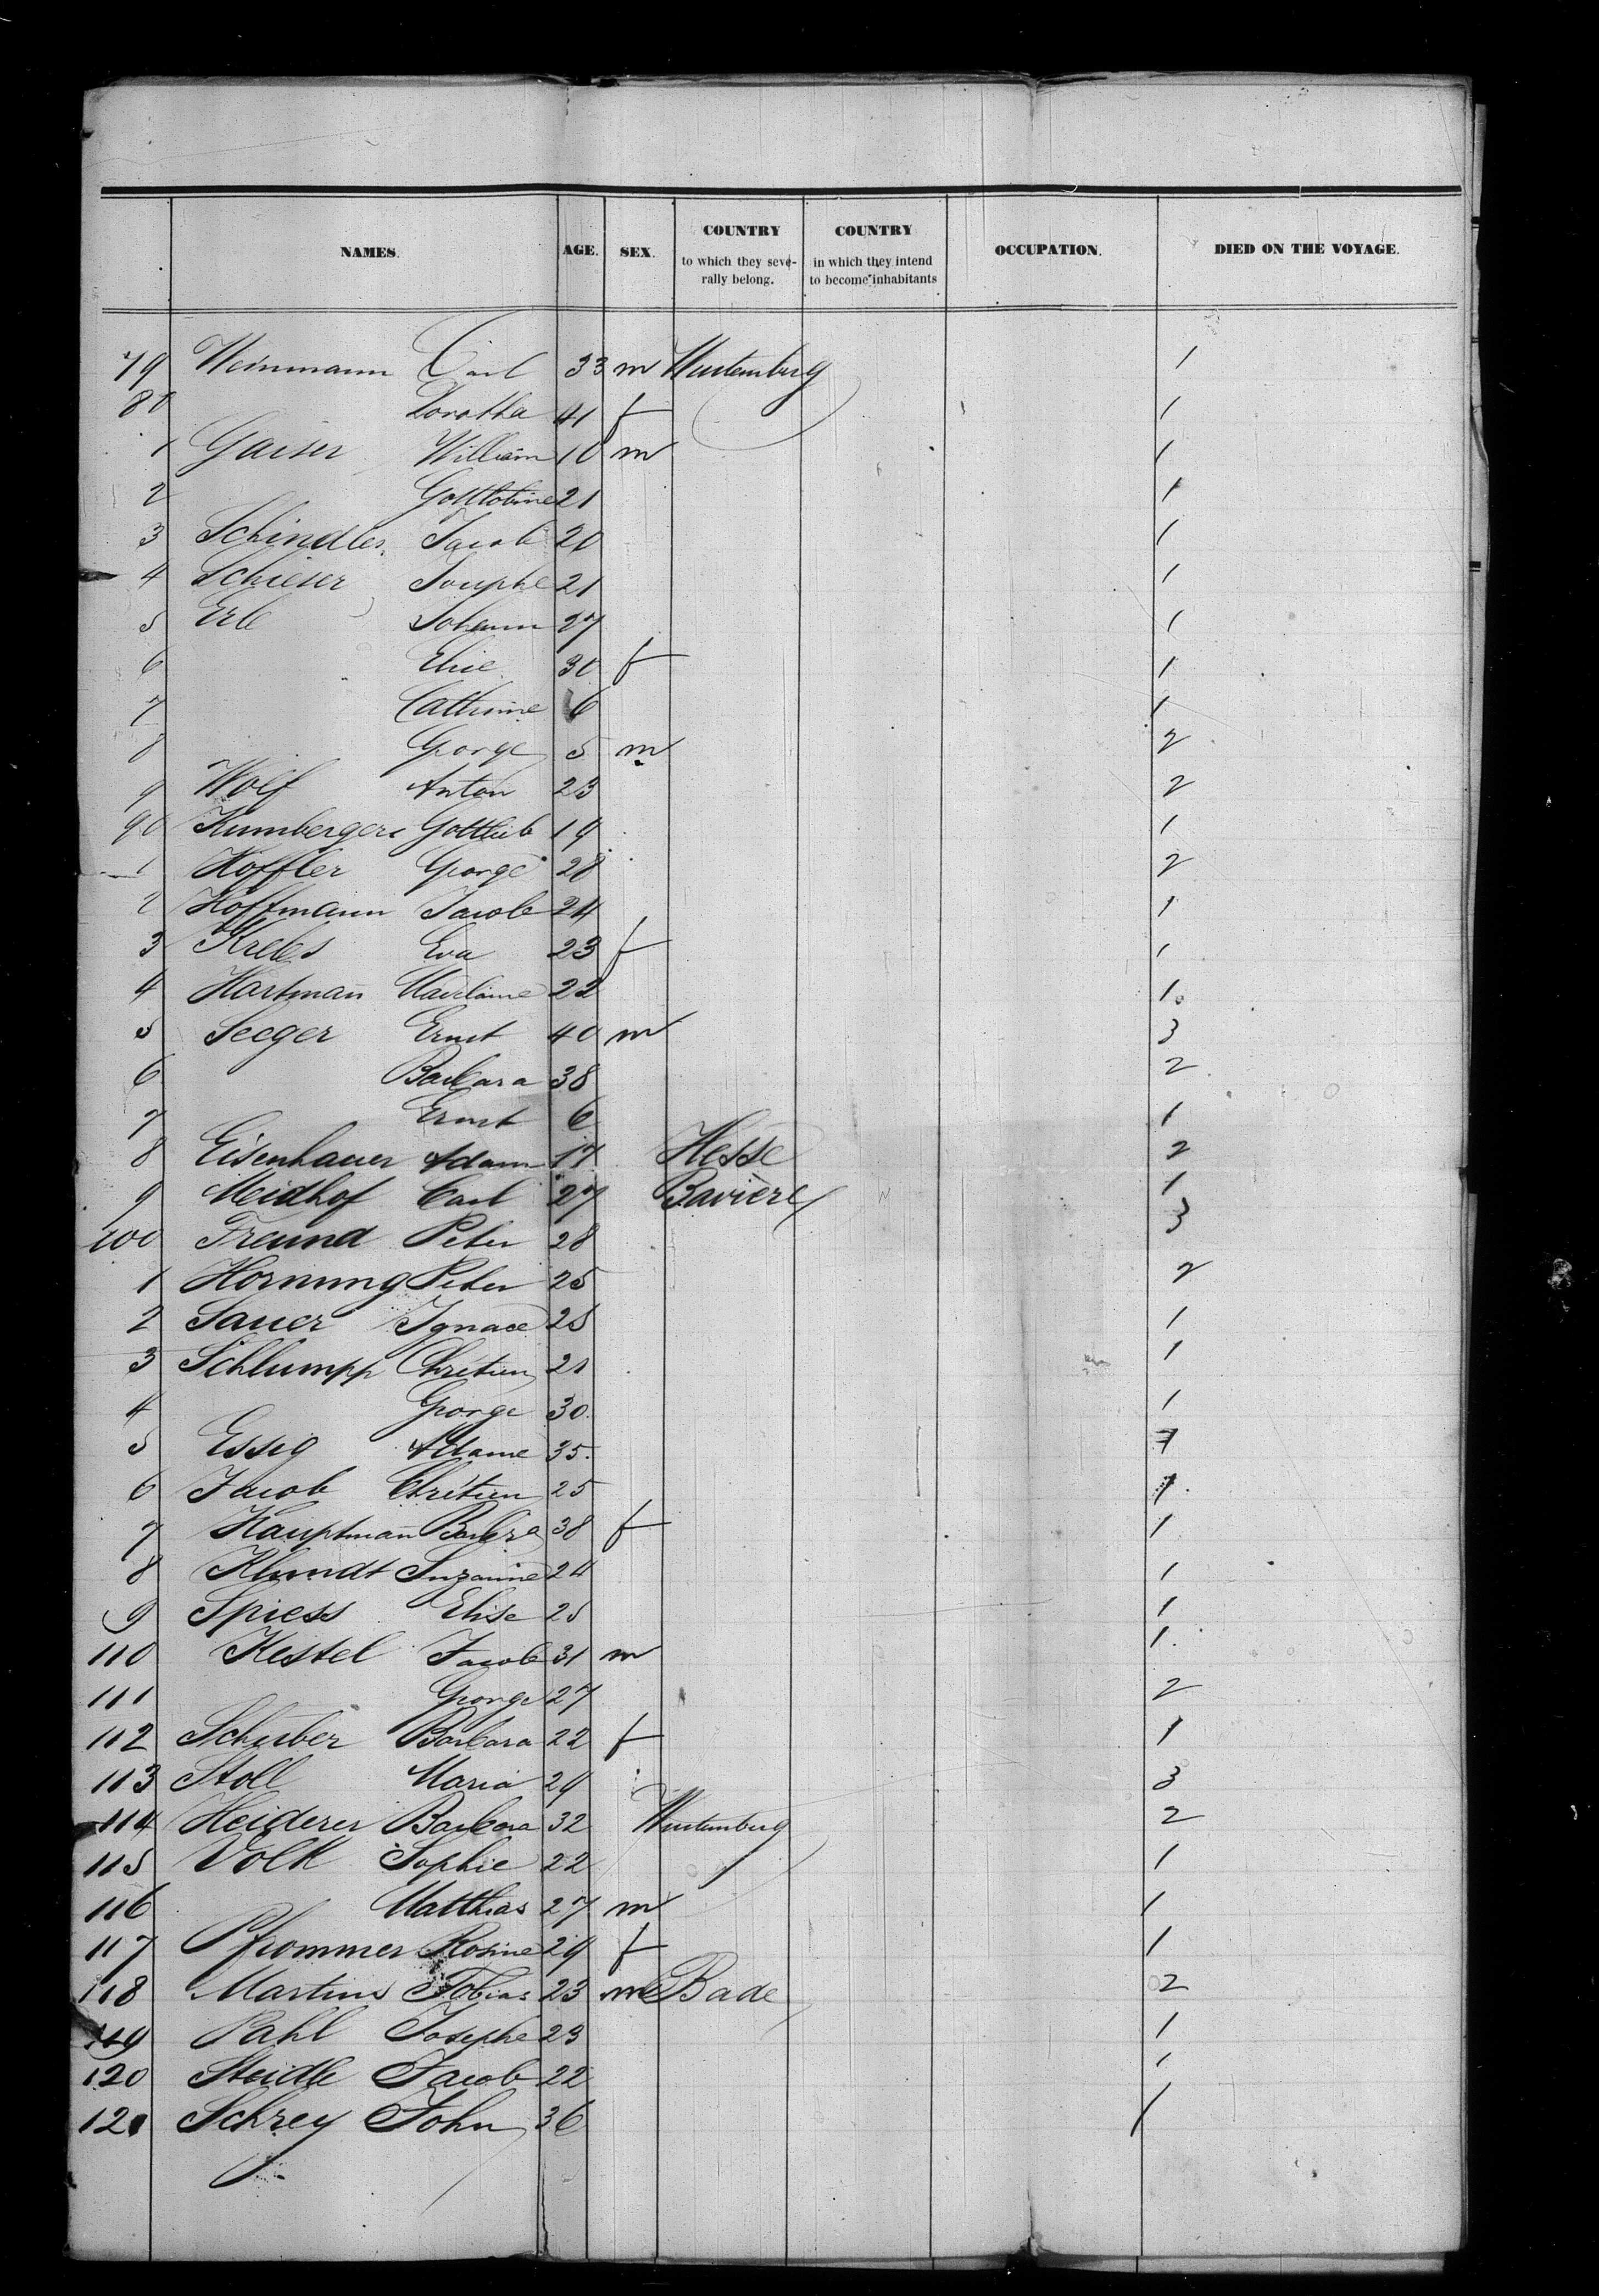 NAMES. AGE. SEX. COUNTRY to which they seve-rally belong. COUNTRY in which they intend to become inhabitants OCCUPATION. DIED ON THE VOYAGE.
79 Weinmann Carl 33 m Wurtemburg 1
80 Dorotha 41 f 1
1 Gaiser William 10 m 1
2 Gottlobine 21 1
3 Schindler Jacob 20 1
4 Schieser Josephe 21 1
5 Erb Johann 27 1
6 Elise 30 f 1
7 Catherine 6 1
8 George 5 m 2
9 Wolf Anton 23 2
90 Kumberger Gottlieb 19 1
1 Hoffler George 28 2
2 Hoffmann Jacob 24 1
3 Krebs Eva 23 f 1
4 Hartman 22 1
5 Seeger Ernst 40 m 3
6 Barbara 38 2
7 Ernst 6 1
8 Eisenhauer Adam 17 Hesse 2
9 Meidhof Carl 27 Bavière 1
100 Freund Peter 28 3
1 Hornung Peter 25 2
2 Sauer Ignace 25 1
3 Schlumpp Chretien 21 1
4 George 30 1
5 Essig Adame 35
6 Jacob Chrétien 25 1
7 Hauptman Barbra 38 f 1
8 Klundt Suzanne 24 1
9 Spiess Elise 25 1
110 Kestel Jacob 31 m 1
111 George 27 2
112 Schuber Barbara 22 f 1
113 Stoll Maria 29 3
114 Heiderer Barbara 32 Wurtemburg 2
115 Volk Sophie 22 1
116 Matthias 27 m 1
117 Pfrommer Rosine 29 f 1
118 Martins Tobias 23 m Bade 2
119 Pahl Josephe 23 1
120 Steidle Jacob 22 1
121 Schrey John 36 1